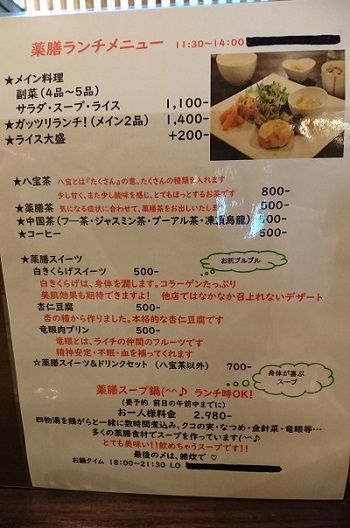 薬膳ランチメニュー 11:30~14:00
★メイン料理
副菜(4品~5品)
サラダ・スープ・ライス 1,100-
★ガッツリランチ!(メイン2品) 1,400-
★ライス大盛 +200-
★八宝茶 八宝とは『たくさん』の意。たくさんの種類を入れます
少し甘く、また少し酸味を感じ、とてもほっとするお茶です 800-
★薬膳茶 気になる症状に合わせて、薬膳茶をお出しいたします 500-
★中国茶(プー茶・ジャスミン茶・プーアル茶・凍頂烏龍) 500-
★コーヒー 500-
★薬膳スイーツ
お肌プルプル
白きくらげスイーツ 500-
白きくらげは、身体を潤します。コラーゲンたっぷり
美肌効果も期待できますよ! 他店ではなかなか召上れないデザート
杏仁豆腐 500-
杏の種から作りました。本格的な杏仁豆腐です
竜眼肉プリン 500-
竜眼とは、ライチの仲間のフルーツです
精神安定・不眠・血を補ってくれます
☆薬膳スイーツ&ドリンクセット (八宝茶以外) 700-
身体が喜ぶ
スープ
薬膳スープ鍋(^^♪ ランチ時OK!
(要予約 前日の午前中までに)
お一人様料金 2.980-
四物湯を鶏がらと一緒に数時間煮込み、クコの実・なつめ・金針菜・竜眼等…
多くの薬膳食材でスープを作っています(^^♪
とても美味い!!飲めちゃうスープです!!
最後の〆は、雑炊で♡
お鍋タイム 18:00~21:30 LO